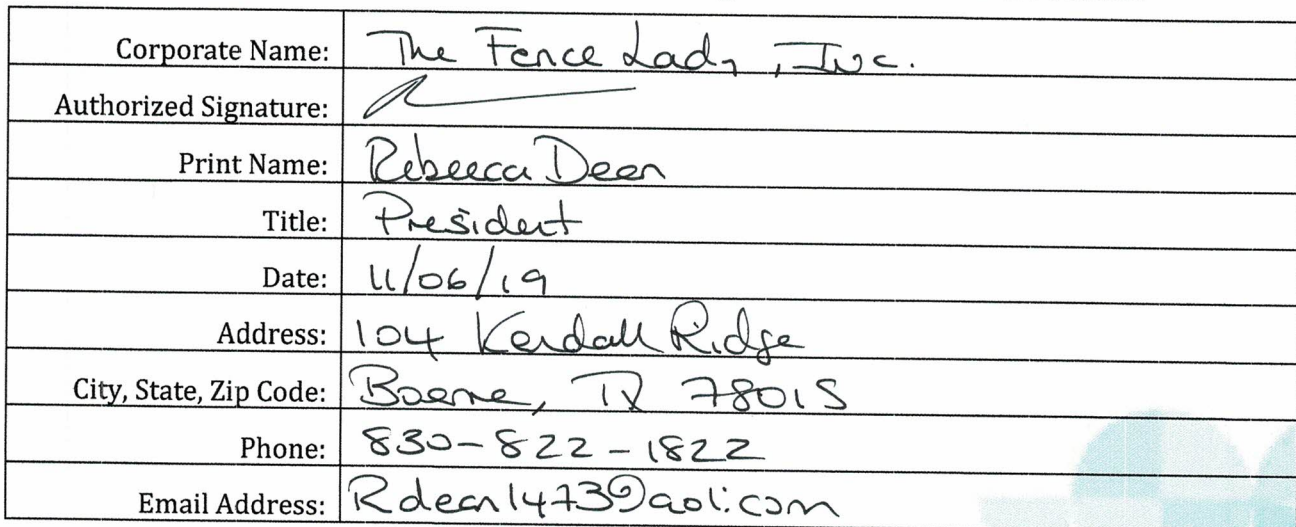 Corporate Name: The Fence Lady, Inc.
Authorized Signature:
Print Name: Rebecca Deen
Title: President
Date: 11/06/19
Address: 104 Kendall Ridge
City, State, Zip Code: Boerne, TX 78015
Phone: 830-822-1822
Email Address: Rdean1473@aol.com